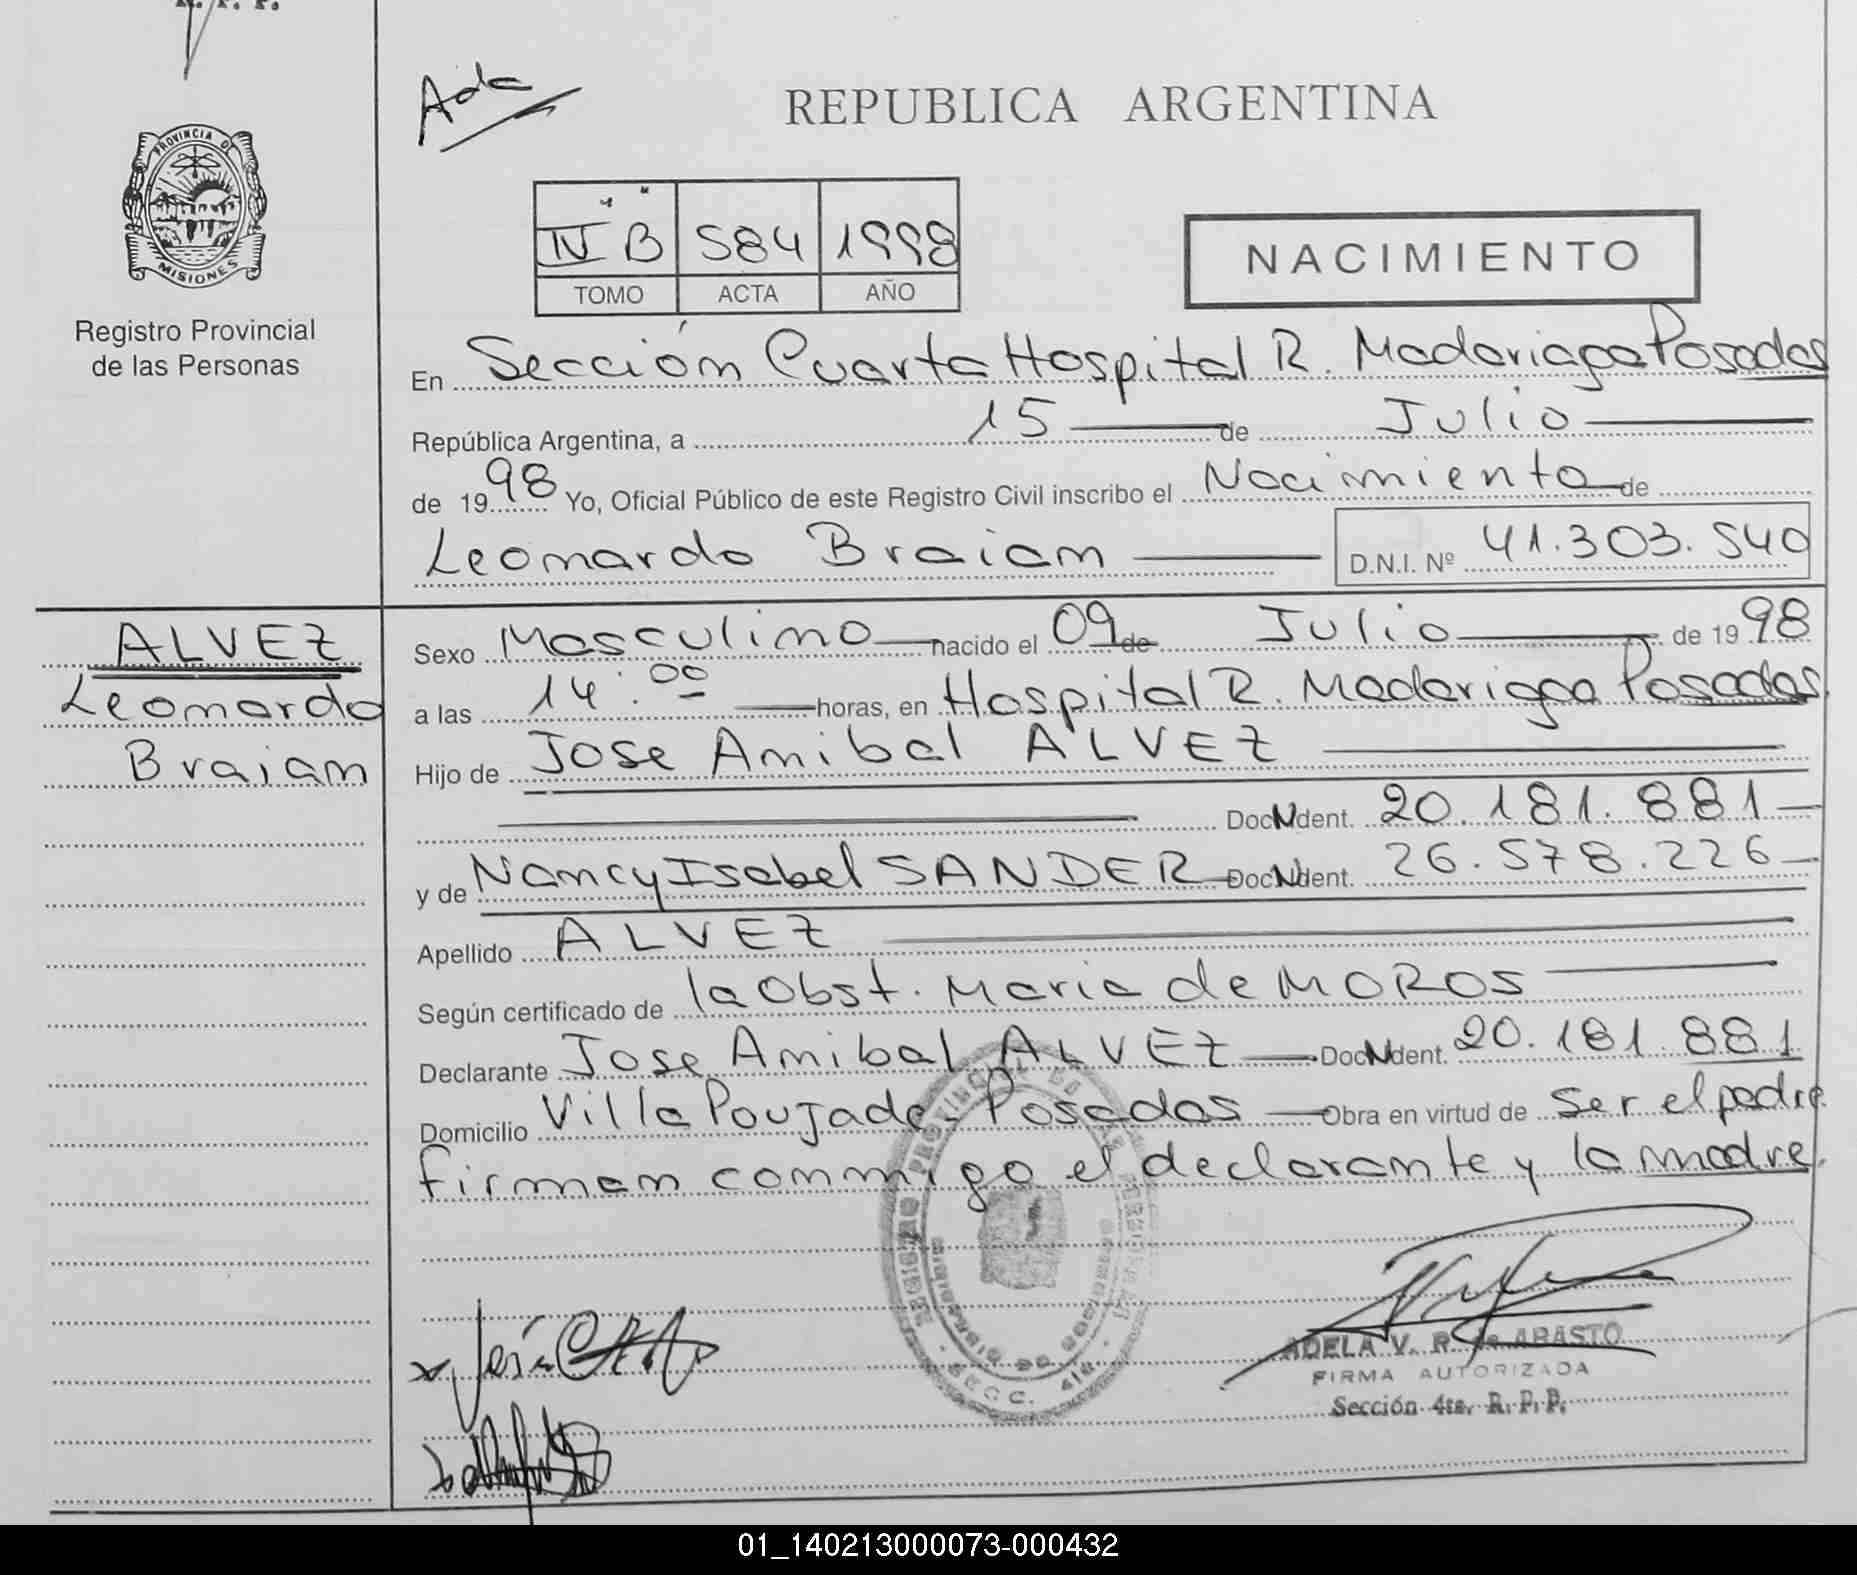 R. P. P.
Ada
REPUBLICA ARGENTINA
PROVINCIA DE
MISIONES
Registro Provincial
de las Personas
IV "B" 584 1998
TOMO ACTA AÑO
NACIMIENTO
En Sección Cuarta Hospital R. Madariaga Posadas
República Argentina, a 15 de Julio
de 1998 Yo, Oficial Público de este Registro Civil inscribo el Nacimiento de
Leonardo Braian D.N.I. Nº 41.303.540
ALVEZ
Leonardo
Braian
Sexo Masculino nacido el 09 de Julio de 1998
a las 14:00 horas, en Hospital R. Madariaga Posadas
Hijo de Jose Anibal ALVEZ
Doc N Ident. 20.181.881
y de Nancy Isabel SANDER Doc N Ident. 26.578.226
Apellido ALVEZ
Según certificado de la Obst. Maria de MOROS
Declarante Jose Anibal ALVEZ Doc N Ident. 20.181.881
Domicilio Villa Poujade - Posadas Obra en virtud de ser el padre
firman conmigo el declarante y la madre.
REGISTRO PROVINCIAL DE LAS PERSONAS
SECC. 4ta.
ADELA V. R. de ABASTO
FIRMA AUTORIZADA
Sección 4ta. R. P. P.
01_140213000073-000432